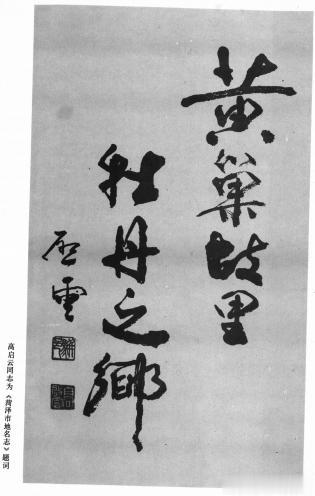 黄巢故里
牡丹之鄉
启雲
高启云同志为《菏泽市地名志》题词